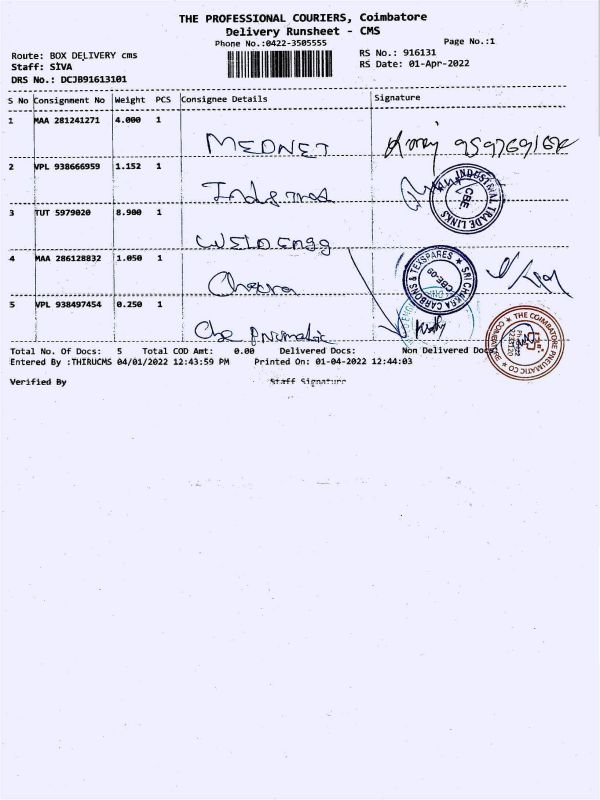 THE PROFESSIONAL COURIERS, Coimbatore
Delivery Runsheet - CMS
Phone No.:0422-3505555 Page No.:1
Route: BOX DELIVERY cms RS No.: 916131
Staff: SIVA RS Date: 01-Apr-2022
DRS No.: DCJB91613101
S No Consignment No Weight PCS Consignee Details Signature
1 MAA 281241271 4.000 1
MEDNET
2 VPL 938666959 1.152 1
INDUSTRIAL TRADE LINKS ★ CBE.
3 TUT 5979020 8.900 1
WELD ENGG
4 MAA 286128832 1.050 1
Chakra
★ SRI CHAKRA CARBONS & TEXSPARES CBE-09
5 VPL 938497454 0.250 1
Cbe Pnumatic
★ THE COIMBATORE PNEUMATIC CO ★
Total No. Of Docs: 5 Total COD Amt: 0.00 Delivered Docs: Non Delivered Docs
Entered By :THIRUCMS 04/01/2022 12:43:59 PM Printed On: 01-04-2022 12:44:03
Verified By Staff Signature